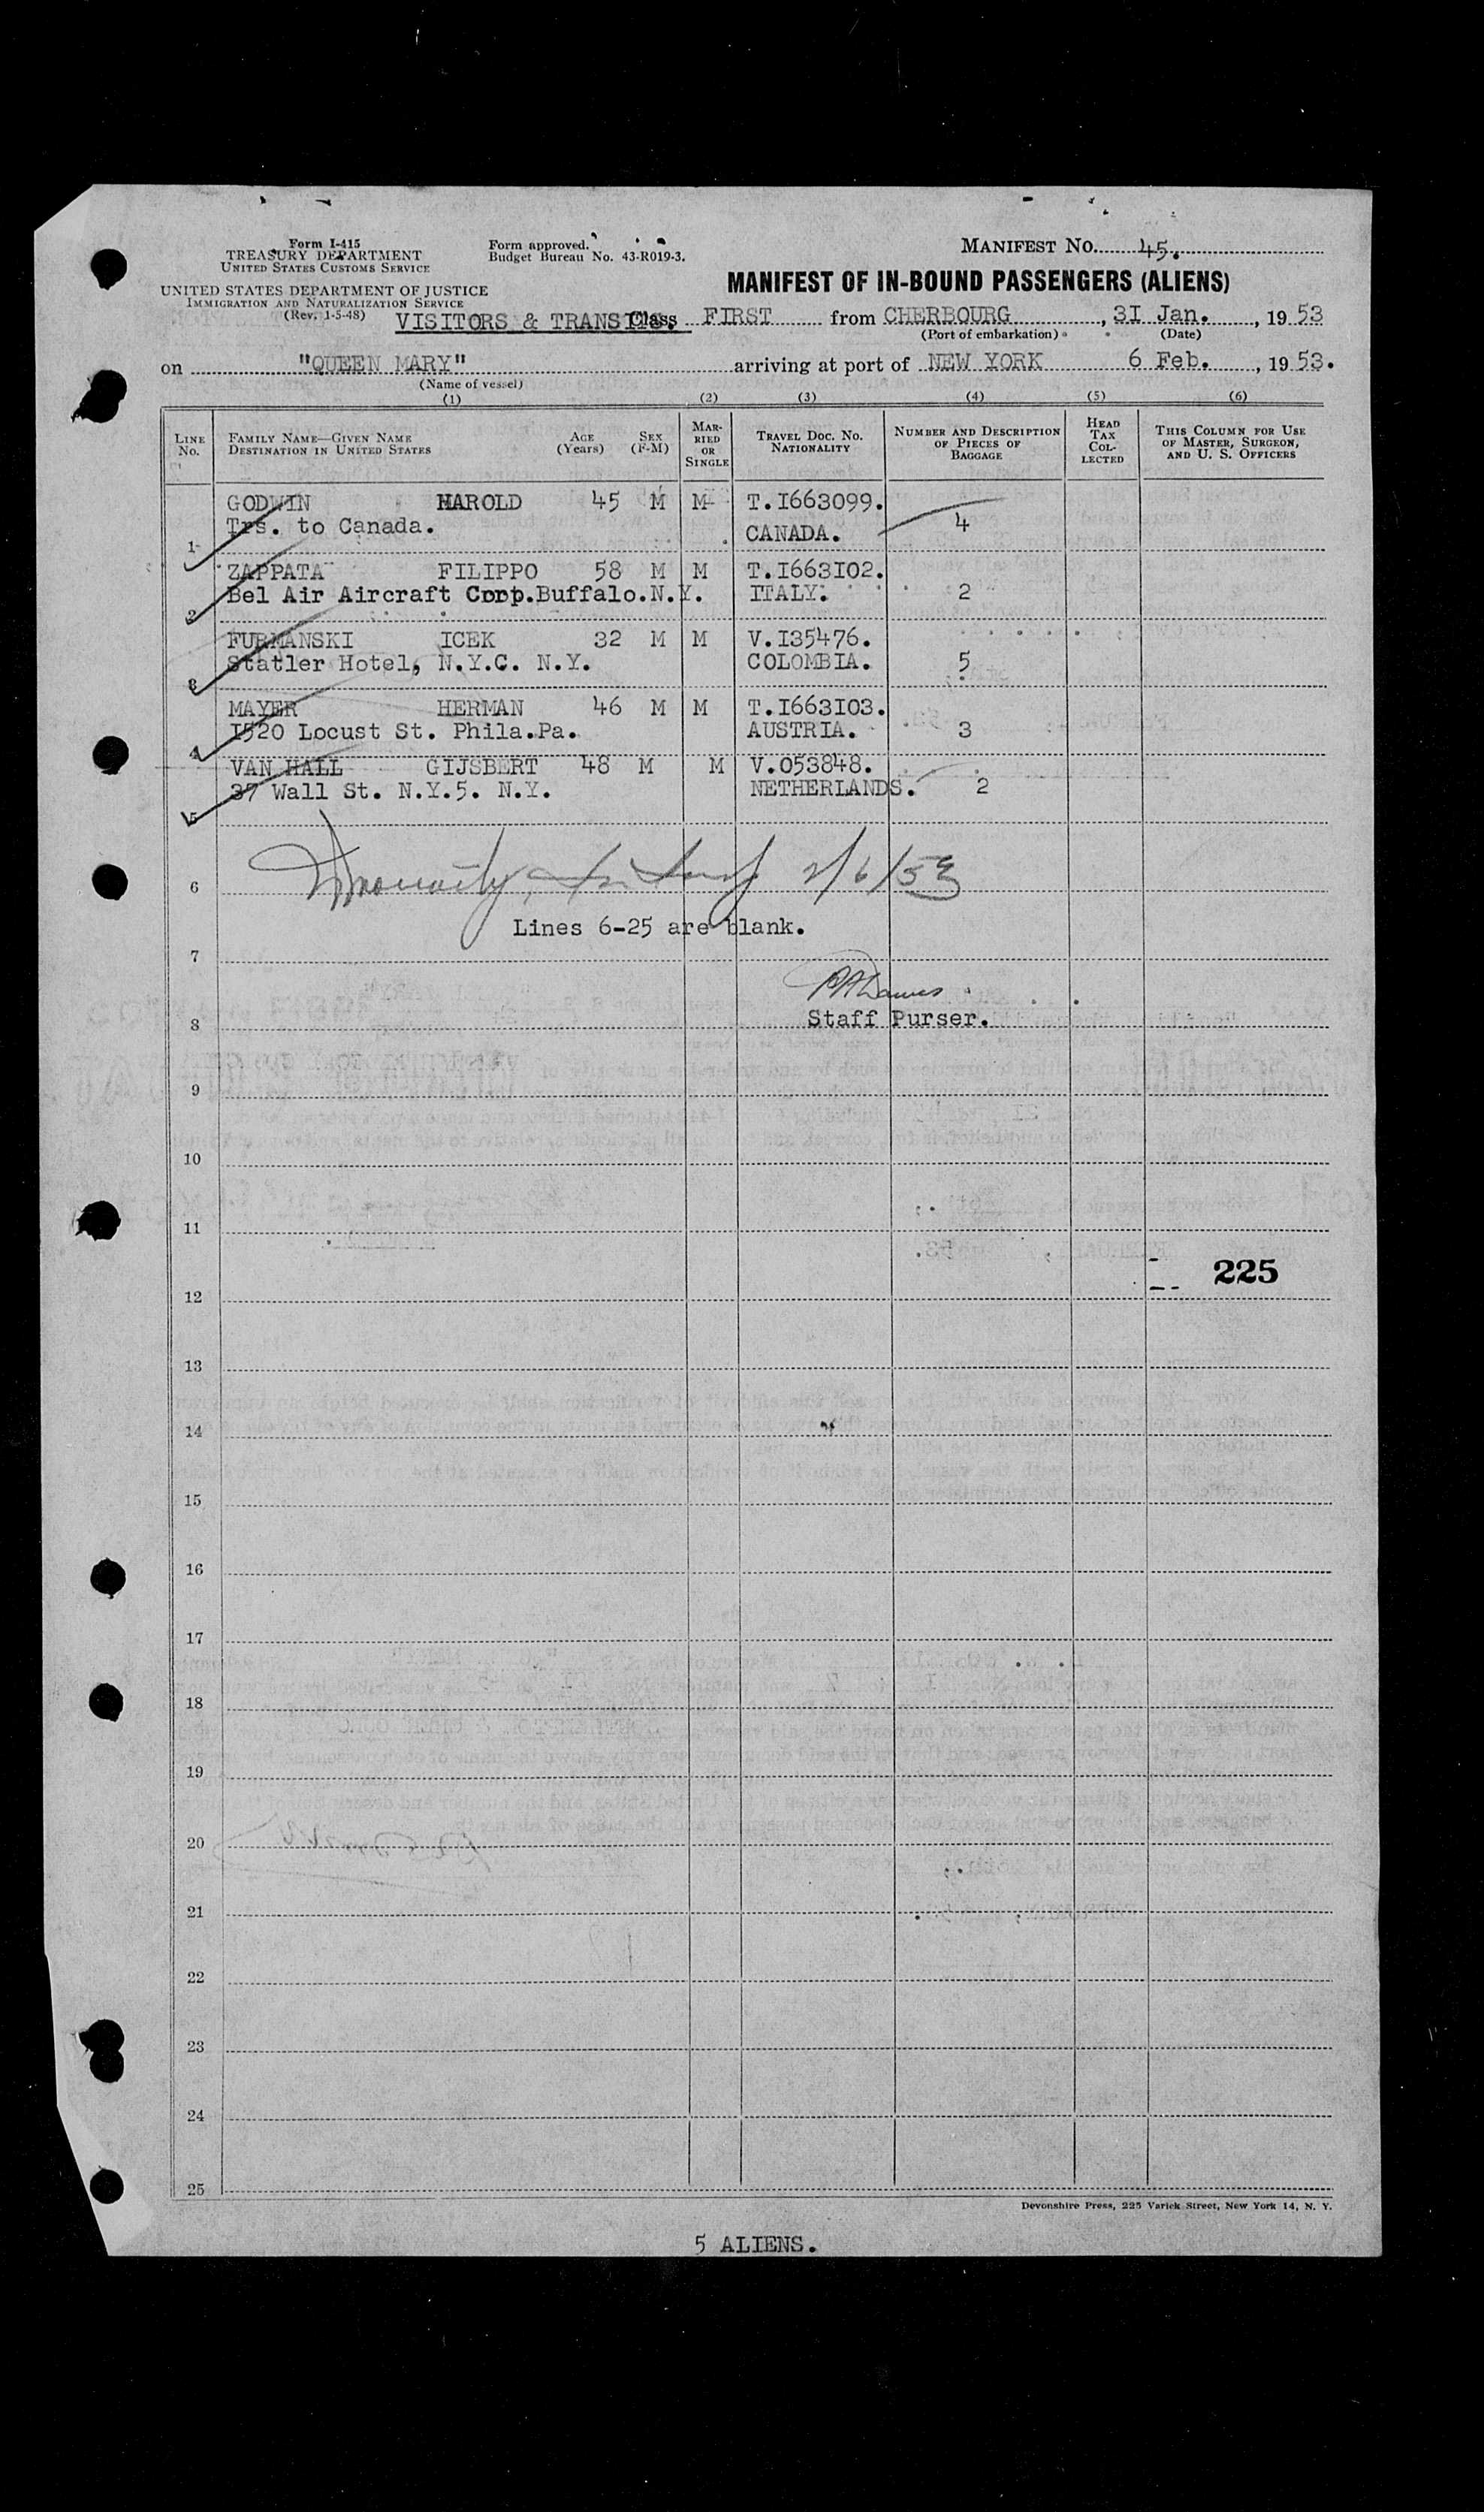 Form I-415
TREASURY DEPARTMENT
UNITED STATES CUSTOMS SERVICE
Form approved.
Budget Bureau No. 43-R019-3.
MANIFEST NO. 45.
UNITED STATES DEPARTMENT OF JUSTICE
IMMIGRATION AND NATURALIZATION SERVICE
(Rev. 1-5-48)
MANIFEST OF IN-BOUND PASSENGERS (ALIENS)
VISITORS & TRANSITS. Class FIRST from CHERBOURG, 3I Jan., 1953
(Port of embarkation) (Date)
on "QUEEN MARY" arriving at port of NEW YORK 6 Feb., 1953.
(Name of vessel)
(1) (2) (3) (4) (5) (6)
LINE No. FAMILY NAME—GIVEN NAME DESTINATION IN UNITED STATES AGE (Years) SEX (F-M) MARRIED OR SINGLE TRAVEL DOC. NO. NATIONALITY NUMBER AND DESCRIPTION OF PIECES OF BAGGAGE HEAD TAX COLLECTED THIS COLUMN FOR USE OF MASTER, SURGEON, AND U. S. OFFICERS
GODWIN HAROLD 45 M M T.I663099.
1 Trs. to Canada. CANADA. 4
ZAPPATA FILIPPO 58 M M T.I663I02.
2 Bel Air Aircraft Corp.Buffalo.N.Y. ITALY. 2
FURMANSKI ICEK 32 M M V.I35476.
3 Statler Hotel, N.Y.C. N.Y. COLOMBIA. 5
MAYER HERMAN 46 M M T.I663I03.
4 I520 Locust St. Phila.Pa. AUSTRIA. 3
VAN HALL GIJSBERT 48 M M V.053848.
5 37 Wall St. N.Y.5. N.Y. NETHERLANDS. 2
6 2/6/53
Lines 6-25 are blank.
7
8 Staff Purser.
9
10
11
225
12
13
14
15
16
17
18
19
20
21
22
23
24
25
Devonshire Press, 225 Varick Street, New York 14, N. Y.
5 ALIENS.